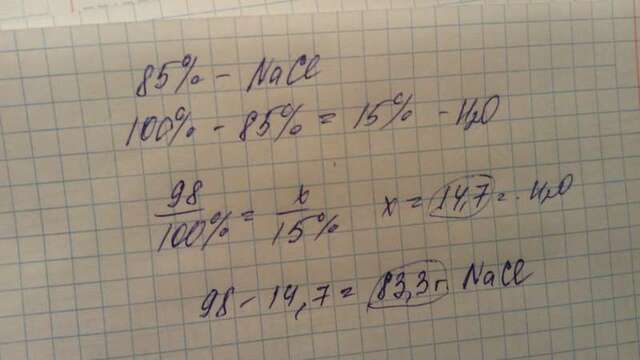 85% - NaCl
100% - 85% = 15% - H2O
98/100% = x/15% x = 14,7 г. H2O
98 - 14,7 = 83,3 г NaCl